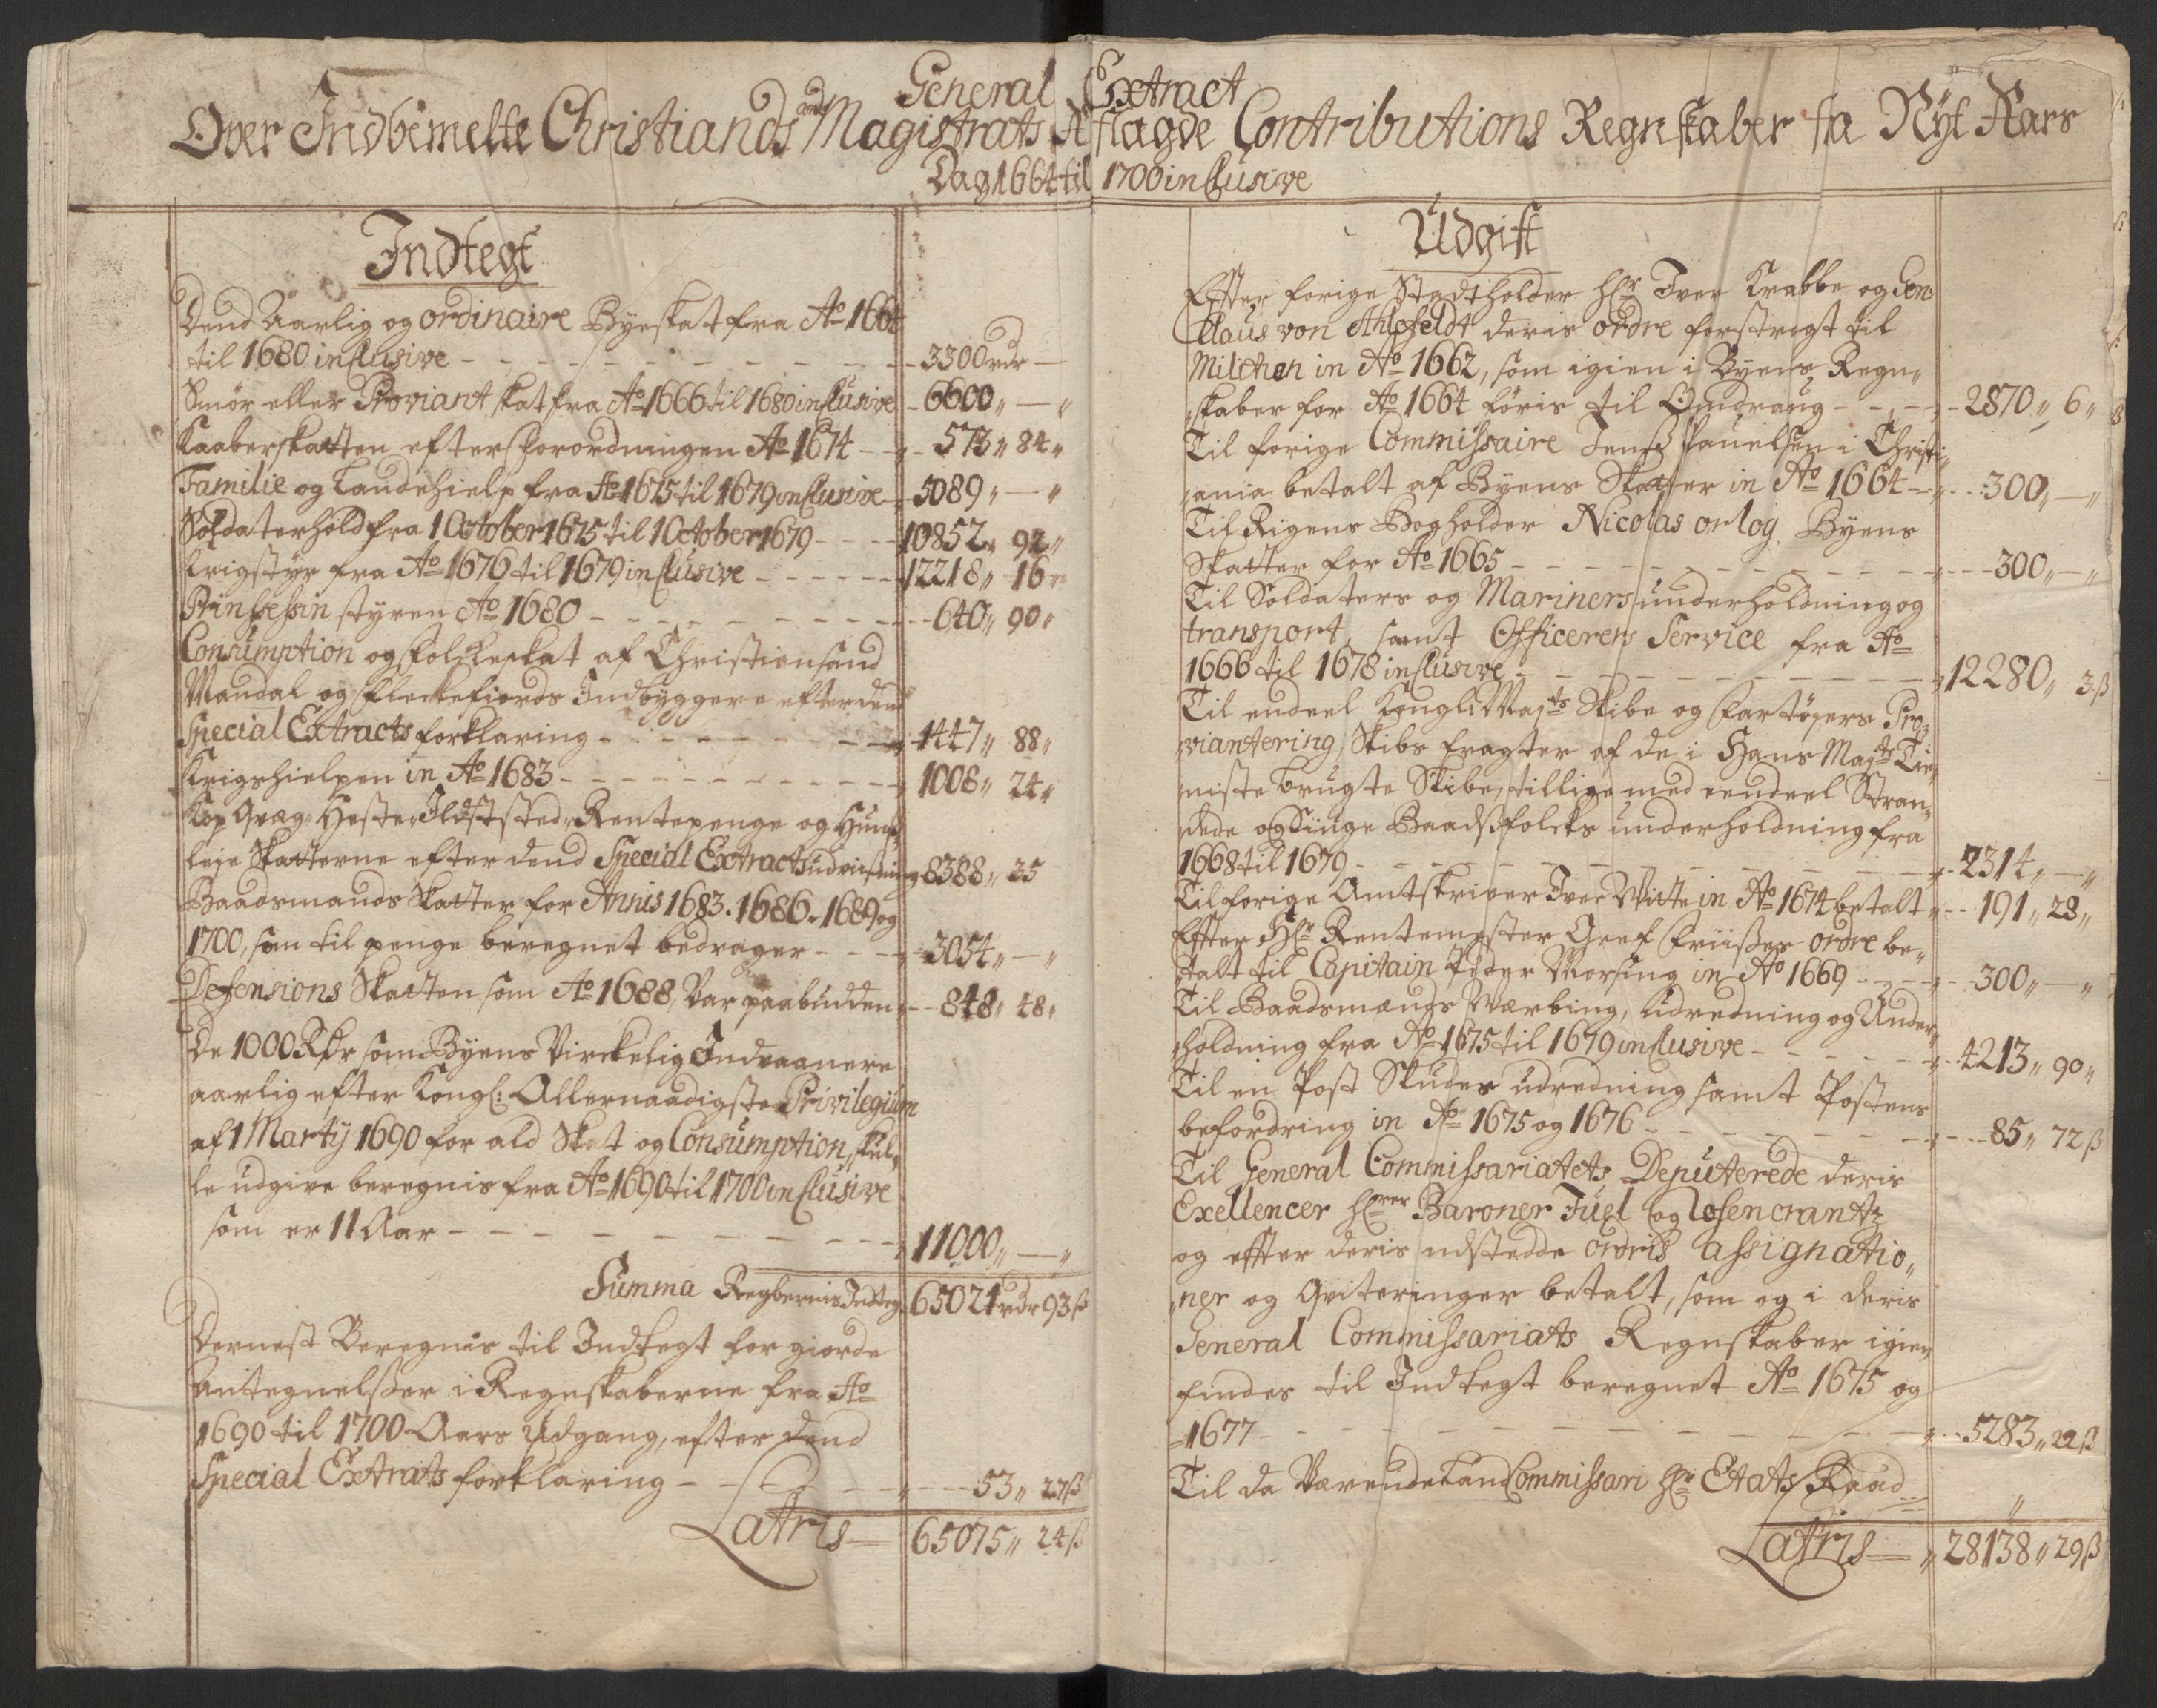 General Extract
Over Indbemelte Christiands sands Magistrats Aflagde Contributions Regnskaber fra Nyt Aars
Dag 1664 til 1700 inclusive
Indtegt
Dend Aarlig og ordinaire Byeskat fra Ao 1664
til 1680 inclusive - - - 3300 rdr —
Smør eller Proviant skat fra Ao 1666 til 1680 inclusive - 6600 „ — „
Kaaberskatten efter forordningen Ao 1674 - - 573 „ 84 „
Familie og Landehielp fra Ao 1675 til 1679 inclusive - 5089 „ — „
Soldaterhold fra 1 October 1675 til 1 October 1679 - - - 10852 „ 92 „
Krigstyr fra Ao 1676 til 1679 inclusive - - - 12218 „ 16 „
Prinsessin styren Ao 1680 - - - 640 „ 90 „
Consumption og folckeskat af Christiansand
Mandal og Fleckefiords Indbyggere efter dend
Special Extracts forklaring - - - 1447 „ 88 „
Krigshielpen in Ao 1683 - - - 1008 „ 24 „
Kop Qvæg, Heste, Ildststed, Rentepenge og Huus
leje Skatterne efter dend Special Extracts udviisning 8388 „ 35
Baadsmands Skatter for Annis 1683. 1686. 1689 og
1700, som til penge beregnet bedrager - - - 3054 „ — „
Defensions Skatten som Ao 1688, Var paabudden - - 848 „ 48 „
De 1000 Rdr som Byens Virckelig Indvaanere
aarlig efter Kongl: Allernaadigste Privilegium
af 1 Martij 1690 for ald Skat og Consumption, skul„
le udgive beregnis fra Ao 1690 til 1700 inclusive
som er 11 Aar - - - 11000 „ — „
Summa Indtegt 65021 rdr 93 ß
Dernest Beregnis til Indtegt for giorde
Antegnelsser i Regnskaberne fra Ao
1690 til 1700 Aars Udgang, efter dend
Special Extracts forklaring - - - 53 „ 27 ß
Latris — 65075 „ 24 ß
Udgift
Efter forige Stadtholder Hr Iver Krabbe og Gen
Claus von Ahlefeldt deris ordre forstragt til
Militien in Ao 1662, som igien i Byens Regn„
skaber for Ao 1664 føris til Omdrang - - - 2870 „ 6 „
Til forige Commissaire Jens Pauelsen i Christi„
ania betalt af Byens Skatter in Ao 1664 - - 300 „ — „
Til Rigens Bogholder Nicolas orlog Byens
Skatter for Ao 1665 - - - 300 „ — „
Til Soldaters og Mariners underholdning og
transport, samt Officerers Service fra Ao
1666 til 1678 inclusive - - - 12280 „ 3 ß
Til endeel Kongl: Mayts Skibe og Fartøyers Pro„
viantering, Skibs fragter af de i Hans Mayts Tie„
niste brugte Skibe, tillige med eendeel Stran„
dede og Siuge Baadsfolcks underholdning fra
1668 til 1679 - - - 2314 „ — „
Til forige Amtskriver Iver Witte in Ao 1674 betalt - - 191 „ 28 „
Efter Hr Rentemester Greef Friisses ordre be„
talt til Capitain Peder Morsing in Ao 1669 - - - 300 „ — „
Til Baadsmænds Værbing, Udredning og Under„
holdning fra Ao 1675 til 1679 inclusive - - - 4213 „ 90 „
Til en Post Skudes udredning samt Postens
befordring in Ao 1675 og 1676 - - - 85 „ 72 ß
Til General Commissariatets Deputerede deris
Exellencer Hrer Baroner Juel og Rosencrantz
og effter deris udstedde ordris assignatio„
ner og Qviteringer betalt, som og i deris
General Commissariats Regnskaber igien
findes til Indtegt beregnet Ao 1675 og
1677 - - - 5283 „ 22 ß
Til da Værende Land Commissari Hr Etats Raad „
Latris — „ 28138 „ 29 ß